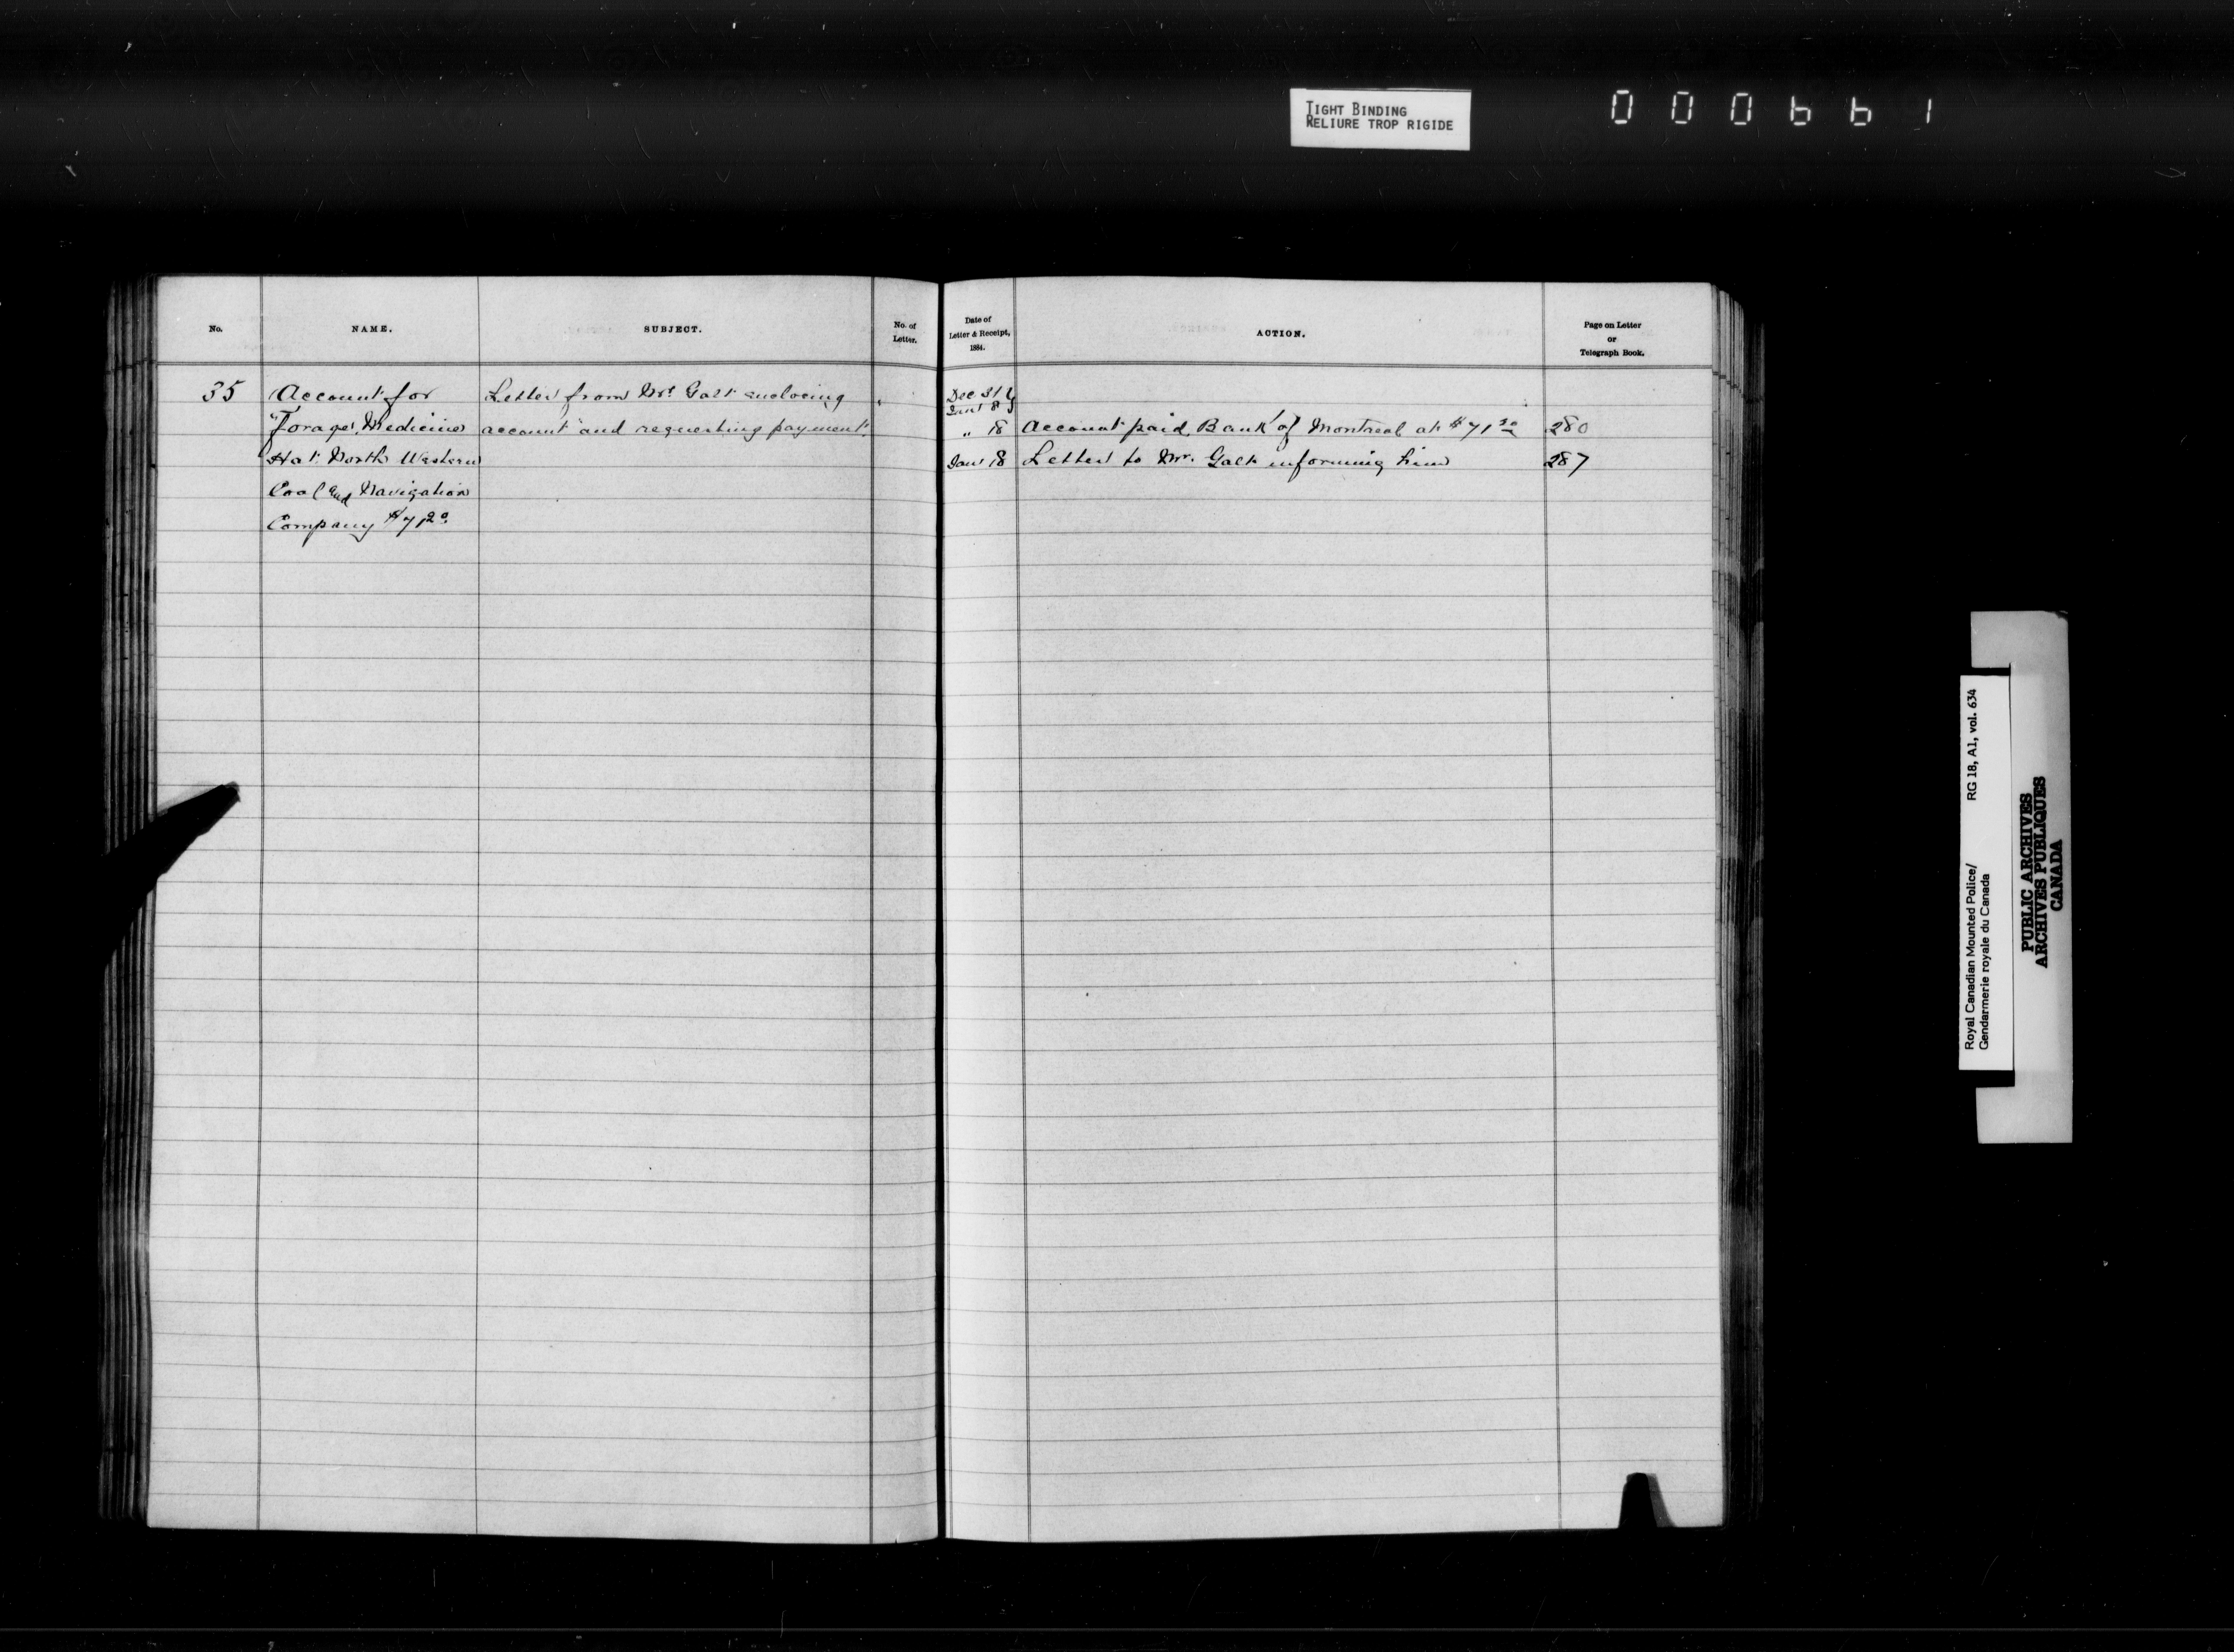 TIGHT BINDING
RELIURE TROP RIGIDE
000661
No.
NAME.
SUBJECT.
No. of
Letter.
Date of
Letter & Receipt,
1884.
ACTION.
Page on Letter
or
Telegraph Book.
35
Account for
Forage, Medicine
Hat. North Western
Coal and Navigation
Company $71.20
Letter from Mr. Galt enclosing
account and requesting payment.
Dec 31
Jany 8
" 18 Account paid, Bank of Montreal at $71.20 280
Jany 18 Letter to Mr. Galt informing him 287
Royal Canadian Mounted Police/ RG 18, A1, vol. 634
Gendarmerie royale du Canada
PUBLIC ARCHIVES
ARCHIVES PUBLIQUES
CANADA